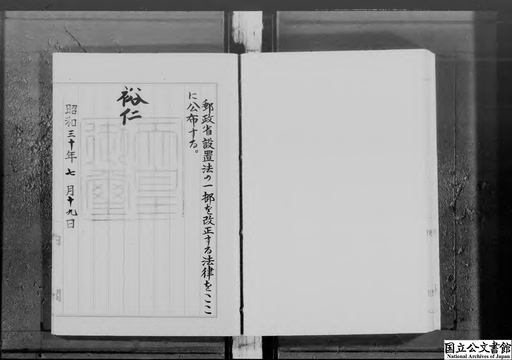 郵政省設置法の一部を改正する法律をここ
に公布する。
裕仁
天皇
御璽
昭和三十年七月十九日
国立公文書館
National Archives of Japan